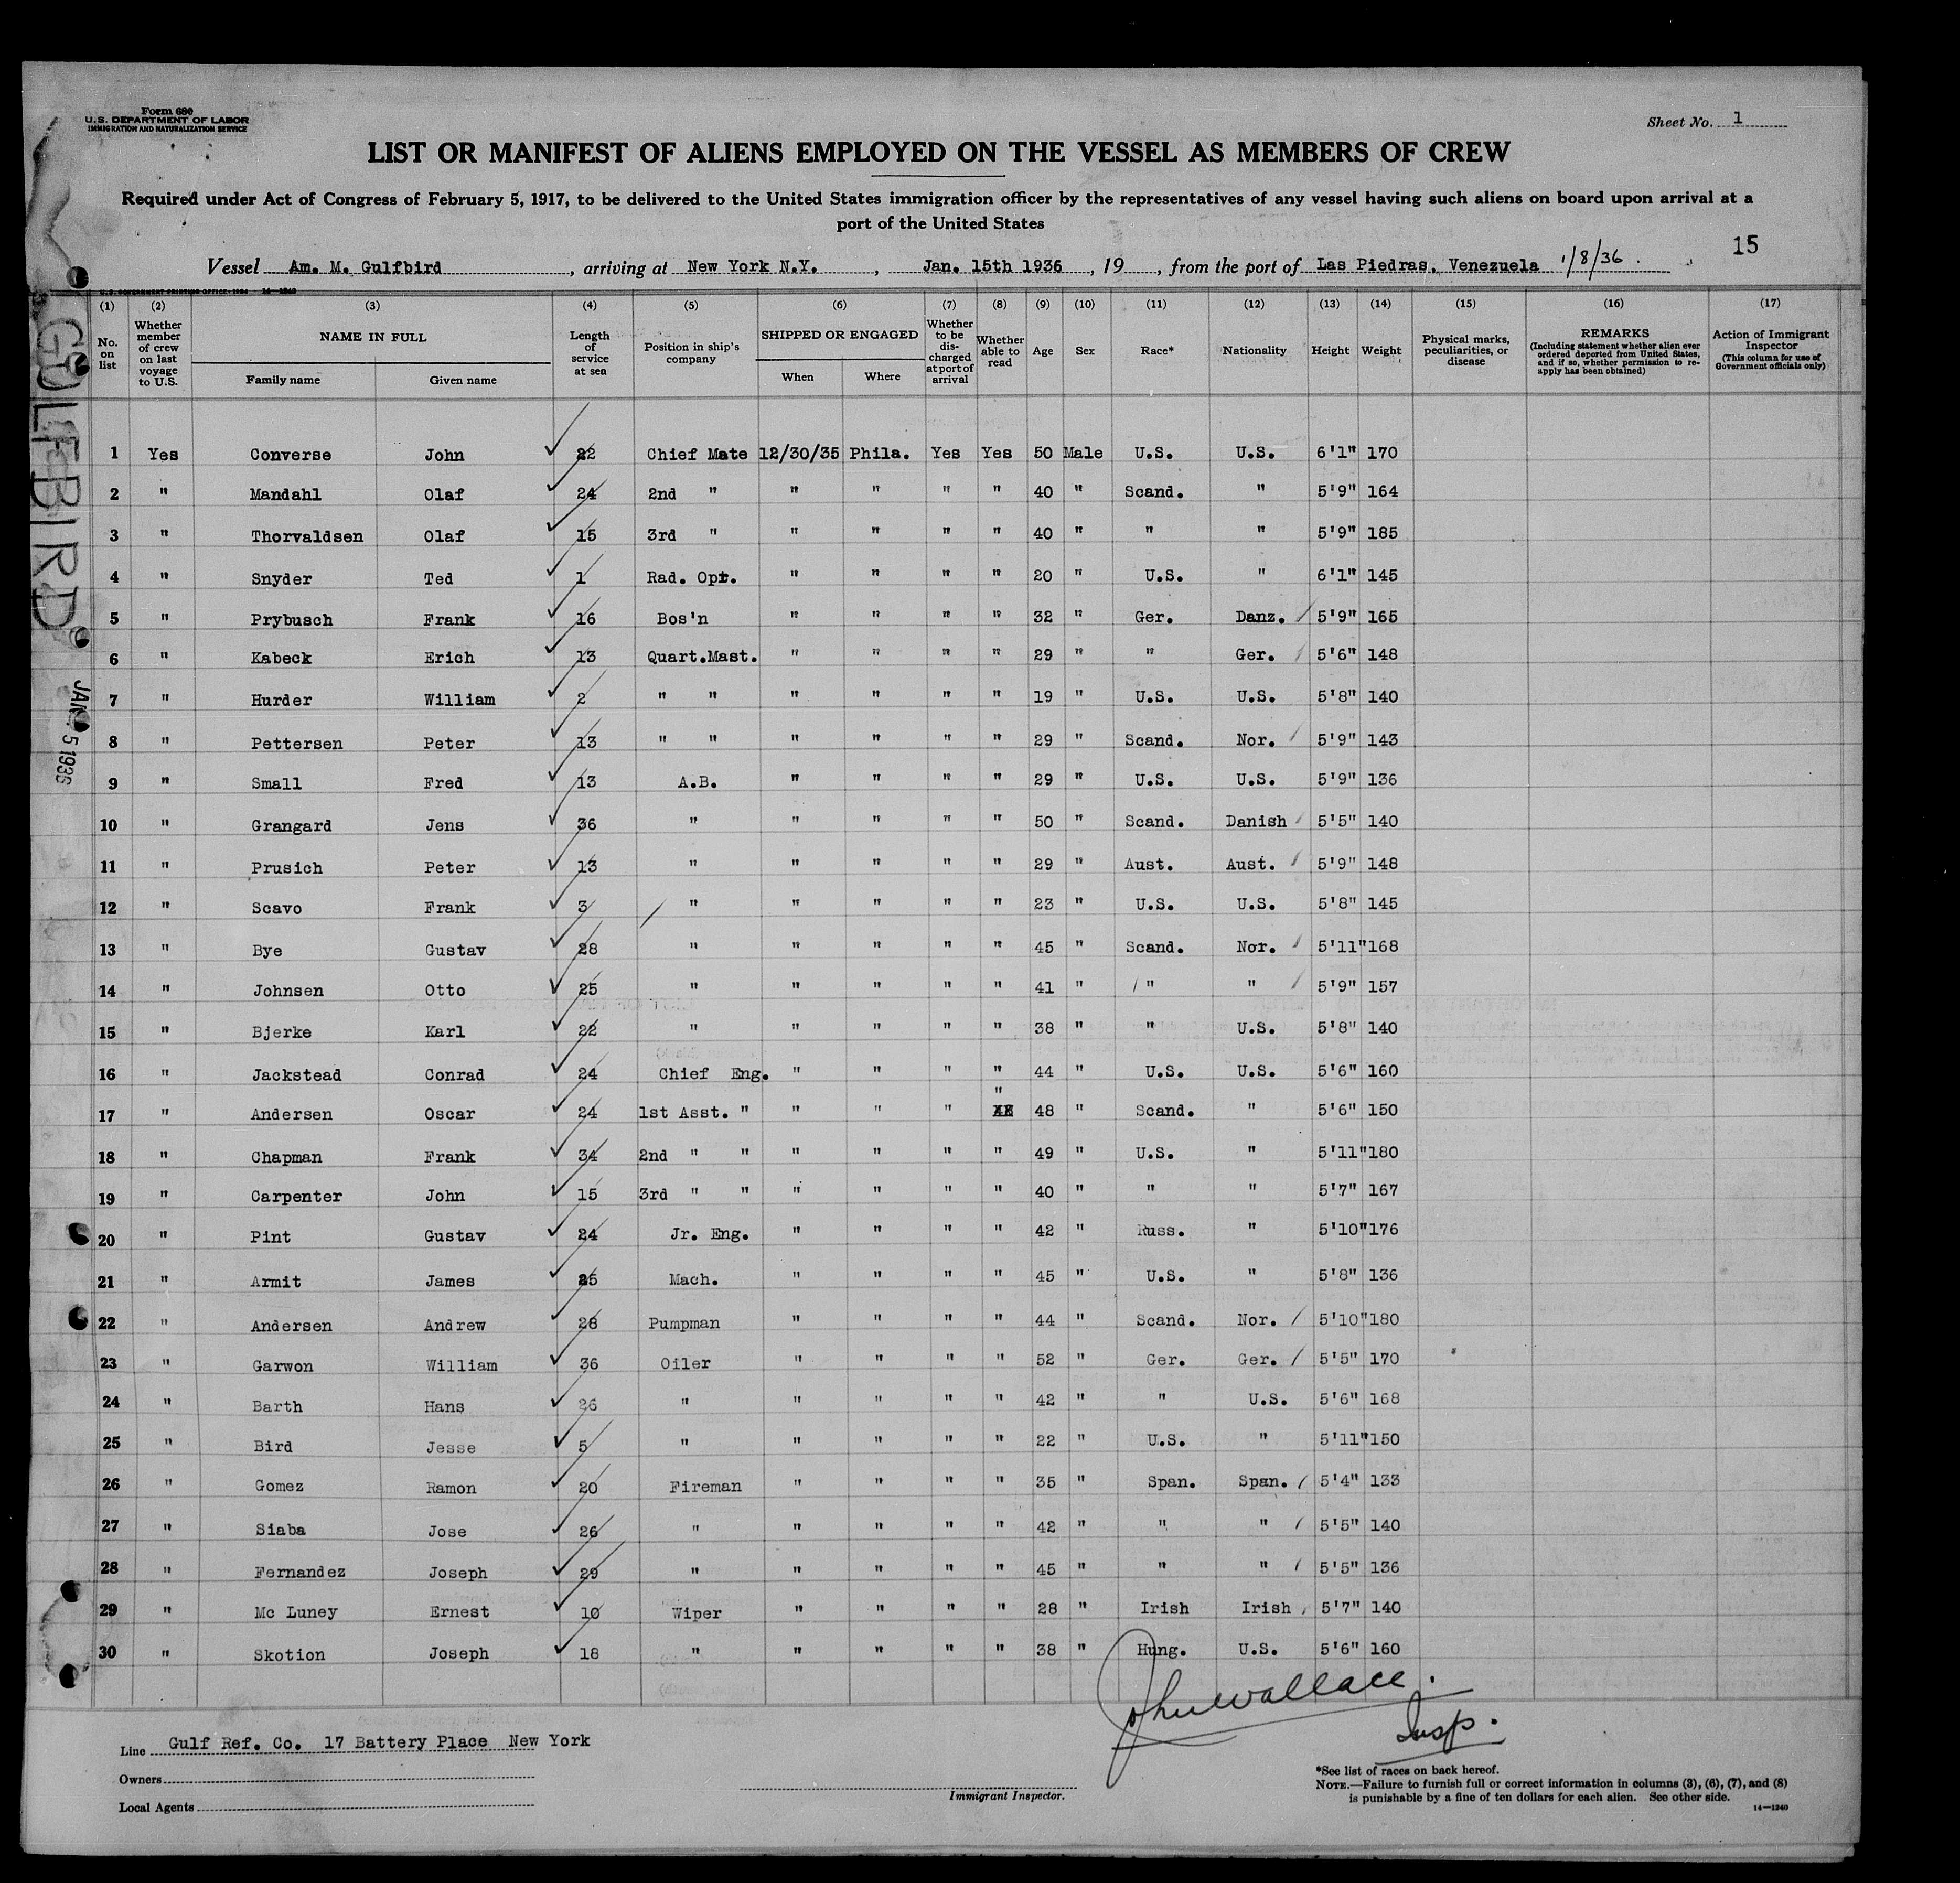 Form 680
U.S. DEPARTMENT OF LABOR
IMMIGRATION AND NATURALIZATION SERVICE
Sheet No. 1
LIST OR MANIFEST OF ALIENS EMPLOYED ON THE VESSEL AS MEMBERS OF CREW
Required under Act of Congress of February 5, 1917, to be delivered to the United States immigration officer by the representatives of any vessel having such aliens on board upon arrival at a
port of the United States
15
Vessel Am. M. Gulfbird, arriving at New York N.Y., Jan. 15th 1936, 19, from the port of Las Piedras, Venezuela 1/8/36.
GULFBIRD
(1) (2) (3) (4) (5) (6) (7) (8) (9) (10) (11) (12) (13) (14) (15) (16) (17)
No. on list
Whether member of crew on last voyage to U.S.
NAME IN FULL
Family name
Given name
Length of service at sea
Position in ship's company
SHIPPED OR ENGAGED
When
Where
Whether to be dis-charged at port of arrival
Whether able to read
Age
Sex
Race*
Nationality
Height
Weight
Physical marks, peculiarities, or disease
REMARKS
(Including statement whether alien ever ordered deported from United States, and if so, whether permission to re-apply has been obtained)
Action of Immigrant Inspector
(This column for use of Government officials only)
1 Yes Converse John 22 Chief Mate 12/30/35 Phila. Yes Yes 50 Male U.S. U.S. 6'1" 170
2 " Mandahl Olaf 24 2nd " " " " " 40 " Scand. " 5'9" 164
3 " Thorvaldsen Olaf 15 3rd " " " " " 40 " " " 5'9" 185
4 " Snyder Ted 1 Rad. Opr. " " " " 20 " U.S. " 6'1" 145
5 " Prybusch Frank 16 Bos'n " " " " 32 " Ger. Danz. 5'9" 165
6 " Kabeck Erich 13 Quart.Mast. " " " " 29 " " Ger. 5'6" 148
7 " Hurder William 2 " " " " " " 19 " U.S. U.S. 5'8" 140
8 " Pettersen Peter 13 " " " " " " 29 " Scand. Nor. 5'9" 143
9 " Small Fred 13 A.B. " " " " 29 " U.S. U.S. 5'9" 136
10 " Grangard Jens 36 " " " " " 50 " Scand. Danish 5'5" 140
11 " Prusich Peter 13 " " " " " 29 " Aust. Aust. 5'9" 148
12 " Scavo Frank 3 " " " " " 23 " U.S. U.S. 5'8" 145
13 " Bye Gustav 28 " " " " " 45 " Scand. Nor. 5'11" 168
14 " Johnsen Otto 25 " " " " " 41 " " " 5'9" 157
15 " Bjerke Karl 22 " " " " " 38 " " U.S. 5'8" 140
16 " Jackstead Conrad 24 Chief Eng. " " " " 44 " U.S. U.S. 5'6" 160
17 " Andersen Oscar 24 1st Asst. " " " " " 48 " Scand. " 5'6" 150
18 " Chapman Frank 34 2nd " " " " " " 49 " U.S. " 5'11" 180
19 " Carpenter John 15 3rd " " " " " " 40 " " " 5'7" 167
20 " Pint Gustav 24 Jr. Eng. " " " " 42 " Russ. " 5'10" 176
21 " Armit James 25 Mach. " " " " 45 " U.S. " 5'8" 136
22 " Andersen Andrew 28 Pumpman " " " " 44 " Scand. Nor. 5'10" 180
23 " Garwon William 36 Oiler " " " " 52 " Ger. Ger. 5'5" 170
24 " Barth Hans 26 " " " " " 42 " " U.S. 5'6" 168
25 " Bird Jesse 5 " " " " " 22 " U.S. " 5'11" 150
26 " Gomez Ramon 20 Fireman " " " " 35 " Span. Span. 5'4" 133
27 " Siaba Jose 26 " " " " " 42 " " " 5'5" 140
28 " Fernandez Joseph 29 " " " " " 45 " " " 5'5" 136
29 " Mc Luney Ernest 10 Wiper " " " " 28 " Irish Irish 5'7" 140
30 " Skotion Joseph 18 " " " " " 38 " Hung. U.S. 5'6" 160
John Wallace.
Insp.
Line Gulf Ref. Co. 17 Battery Place New York
Owners
Local Agents
Immigrant Inspector.
*See list of races on back hereof.
NOTE.—Failure to furnish full or correct information in columns (3), (6), (7), and (8)
is punishable by a fine of ten dollars for each alien. See other side.
14—1240